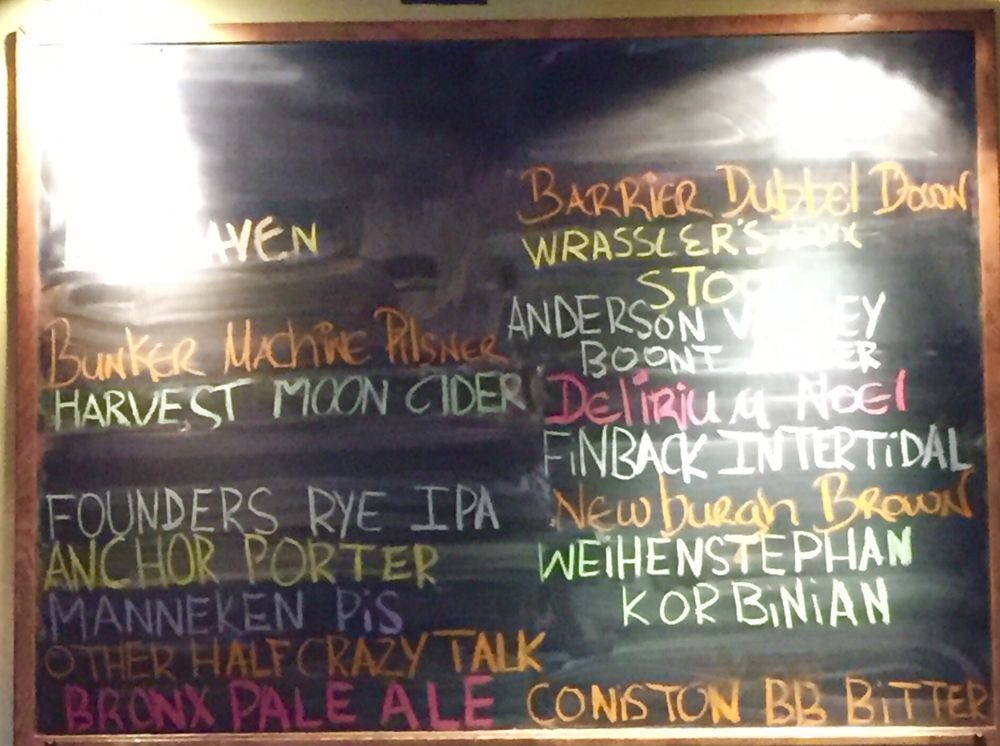 BUNKER MACHINE PILSNER
HARVEST MOON CIDER
FOUNDERS RYE IPA
ANCHOR PORTER
MANNEKEN PiS
OTHER HALF CRAZY TALK
BRONX PALE ALE
BARRIER DUBBEL DOWN
WRASSLER'S
ANDERSON
BOONT
DELIRIUM NOEL
FiNBACK INTERTiDAL
NEWBURGH BROWN
WEiHENSTEPHAN
KORBiNiAN
CONISTON BB BiTTER